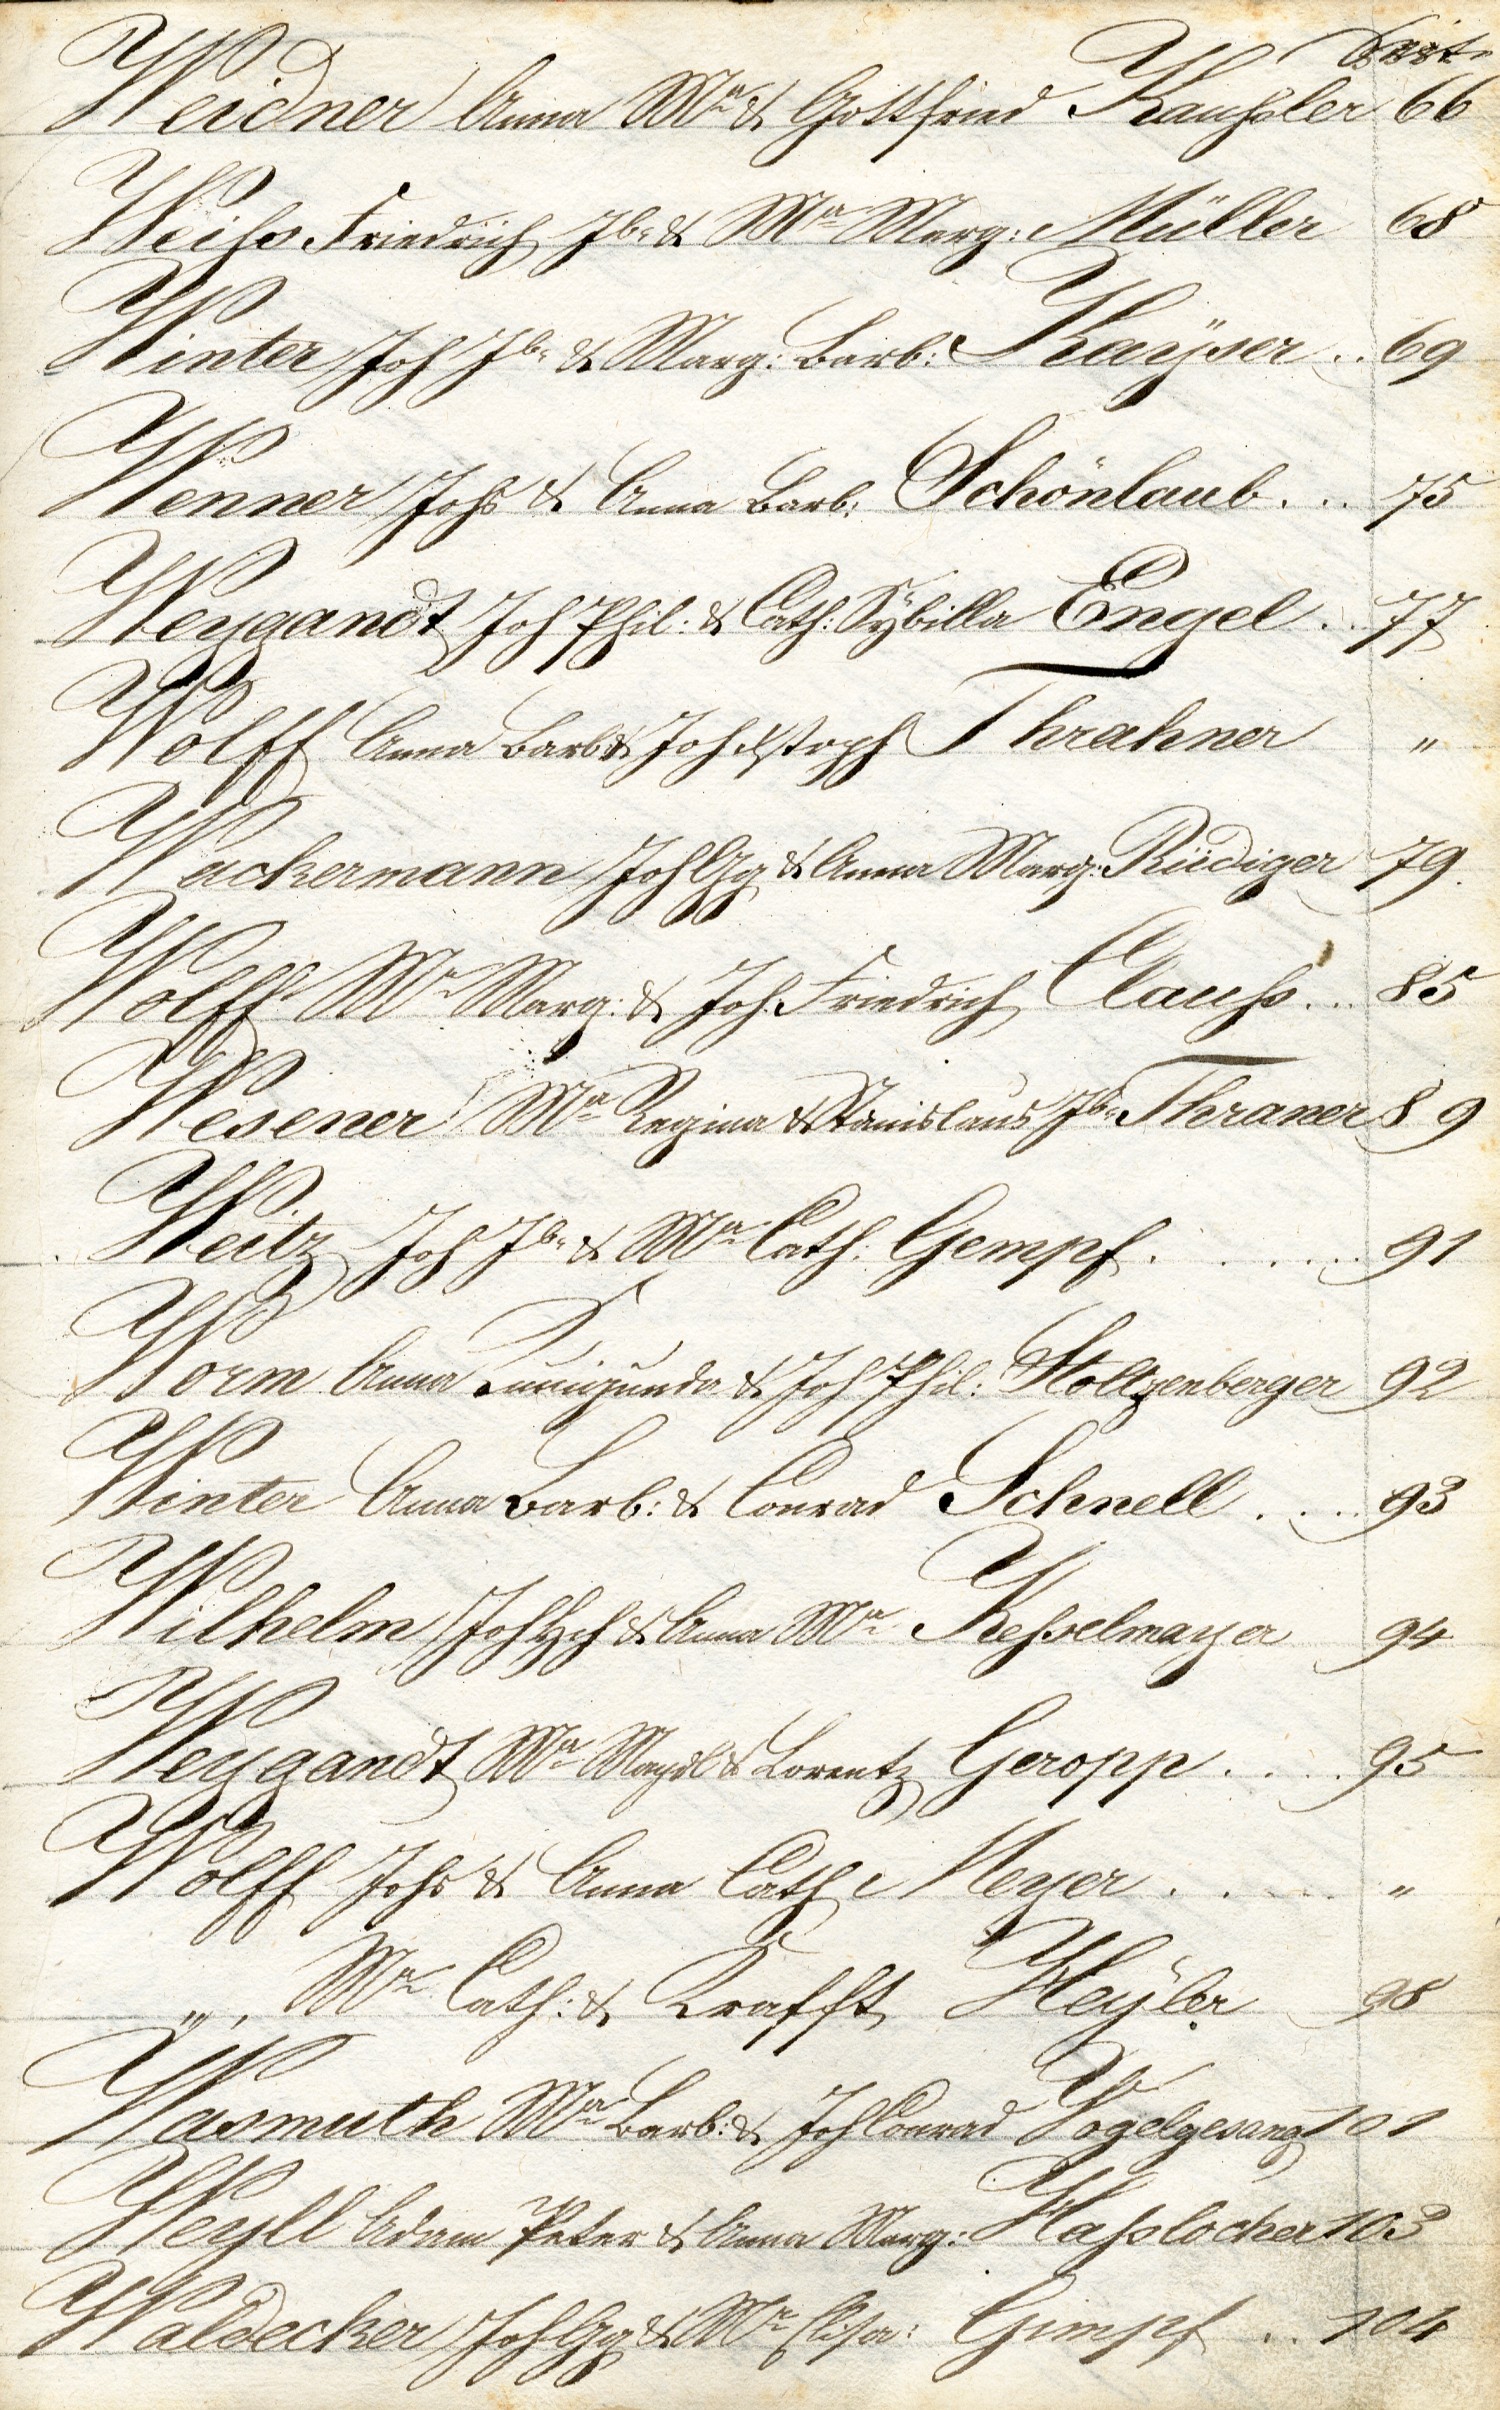 Seite
Weidner Anna Ma & Gottfried Kausler 66
Weiss Friedrich Jb. & Ma Marg: Müller 68
Winter Joh Jb. & Marg: Barb: Kayser .. 69
Wenner Johs & Anna Barb: Schönlaub ... 75
Weygandt Joh Phil: & Cath: Sybilla Engel .. 77
Wolff Anna Barb & Joh Christoph Thrahner "
Wackermann Joh Gg & Anna Marg: Rüdiger 79.
Wolff Ma Marg: & Joh. Friedrich Clauss ... 85
Wesener Ma Regina & Stanislaus Jb. Thraner 89
Weitz Joh Jb. & Ma Cath: Gempf ...... 91
Worm Anna Cunigunda & Joh Phil: Stoltzenberger 92
Winter Anna Barb: & Conrad Schnell .... 93
Wilhelm Joh Hch & Anna Ma Kesselmayer 94
Weygandt Ma Magdl & Lorentz Geropp .... 95
Wolff Johs & Anna Cath: Meyer ..... "
" . Ma Cath: & Krafft Heyler 98
Wasmuth Ma Barb: & Joh Conrad Vogelgesang 101
Weyll Adam Peter & Anna Marg: Hasslocher 103
Waldecker Joh Gg & Ma Elisa: Gimpf .. 104